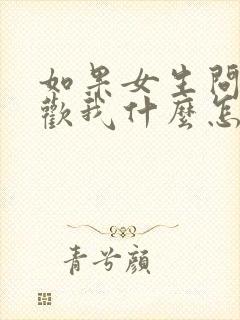 如果女生問
歡我什麼怎
青兮顏